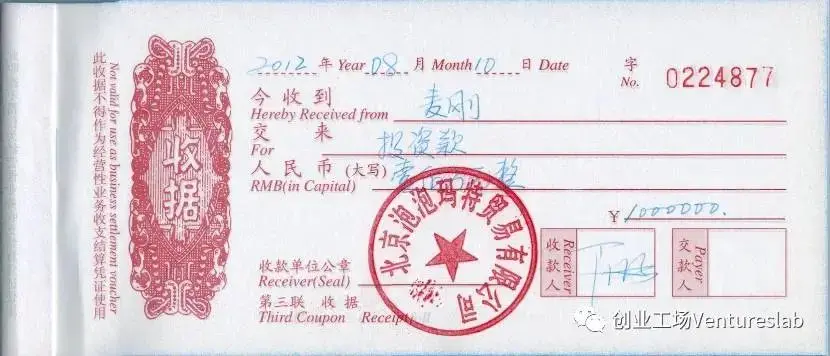 此收据不得作为经营性业务收支结算凭证使用
Not valid for use as business settlement voucher
收据
2012 年 Year 08 月 Month 10 日 Date
字
No. 0224877
今收到
Hereby Received from 麦刚
交来
For 投资款
人民币 (大写) 壹 整
RMB(in Capital)
¥ 1000000.
北京泡泡玛特贸易有限公司
收款单位公章
Receiver(Seal)
第三联 收据
Third Coupon Receipt
收款人 Receiver
交款人 Payer
创业工场Ventureslab